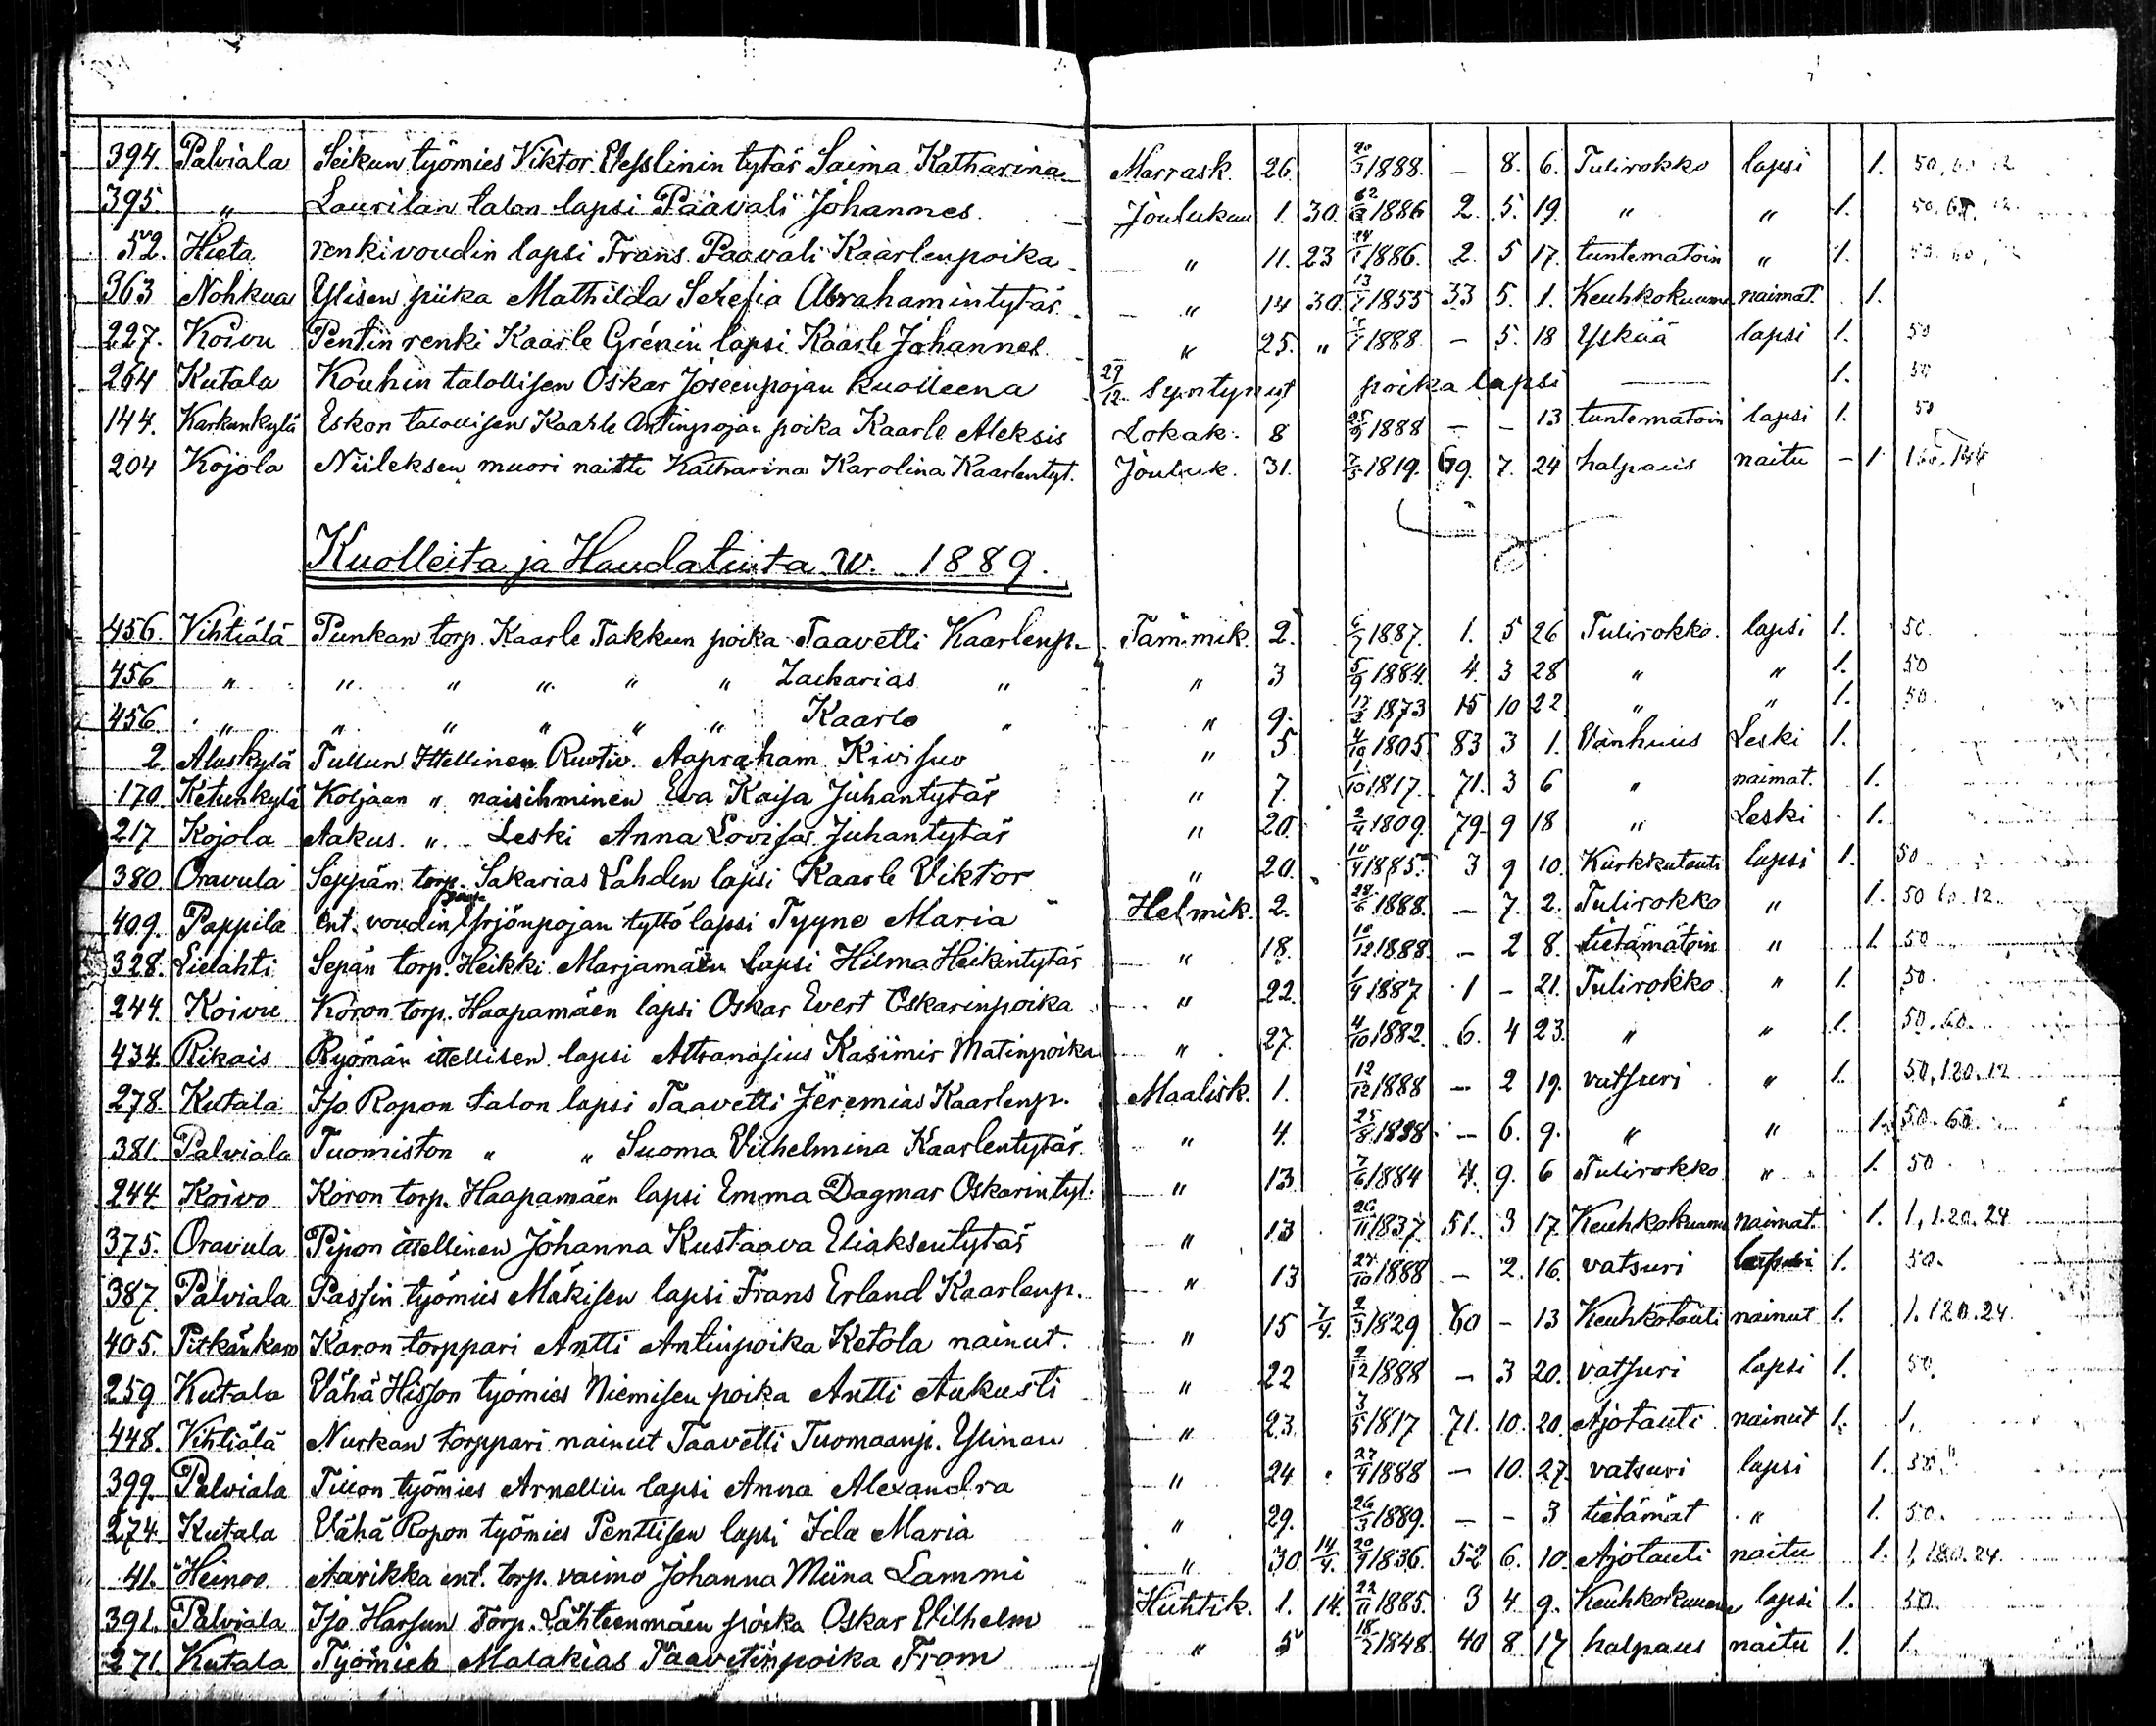 394. Palviala Seikun työmies Viktor Elesslinin tytär Saima Katharina Marrask. 26. 20/3 1888. — 8. 6. Tulirokko lapsi 1. 50, 60 12
395. " Laurilan talon lapsi Paavali Johannes. Joulukuu 1. 30. 1886 2. 5. 19. " " 1. 50. 60. 12.
52. Hieta renkivoudin lapsi Frans Paavali Kaarlenpoika " 11. 23 1886. 2. 5 17. tuntematoin " 1. 50. 60,
363 Nohkua Ylisen piika Mathilda Serefia Abrahamintytär " 14 30. 13/7 1855 33 5. 1. Keuhkokuume naimat. 1.
227. Koivu Pentin renki Kaarle Grénin lapsi Kaarle Johannes " 25. " 1888. — 5. 18 Yskää lapsi 1. 50
264 Kutala Kouhin talollisen Oskar Joseenpojan kuolleena 29/12 syntynyt poika lapsi — 1. 50
144. Karkunkylä Eskon talollisen Kaarle Antinpojan poika Kaarle Aleksis Lokak. 8 25/9 1888 — — 13 tuntematoin lapsi 1. 50
204 Kojola Niileksen muori naittu Katharina Karolina Kaarlentyt. Jouluk. 31. 7/5 1819. 69. 7. 24 halpaus naitu — 1 144
Kuolleita ja Haudatuita w. 1889.
456. Vihtiälä Punkan torp. Kaarle Takkun poika Taavetti Kaarlenp. Tammik. 2. 6/7 1887. 1. 5 26 Tulirokko. lapsi 1. 50.
456 " " " " " " Zacharias " " 3 5/9 1884. 4. 3 28 " " 1. 50
456 " " " " " " Kaarlo " " 9. 1873 15 10 22 " " 1. 50.
2. Aluskylä Tullun Ittellinen Ruotiv. Aapraham Kivisuo " 5 4/10 1805 83 3 1. Vanhuus Leski 1.
170 Ketunkylä Koljaan " naisihminen Eva Kaisa Juhantytär " 7. 1/10 1817. 71. 3 6 " naimat. 1.
217 Kojola Aakus. " Leski Anna Lovisa Juhantytär " 20. 2/4 1809. 79. 9 18 " Leski 1.
380. Oravula Seppän torp. Sakarias Lahden lapsi Kaarle Viktor " 20. 10/4 1885. 3 9 10. Kurkkutauti lapsi 1. 50
409. Pappila ent. voudin Yrjönpojan tyttö lapsi Tyyne Maria Helmik. 2. 28/6 1888. — 7. 2. Tulirokko " 1. 50 60. 12.
328. Lielahti Sepän torp. Heikki Marjamäen lapsi Hilma Heikintytär " 18. 10/12 1888. — 2 8. tietämätöin " 1 50
244. Koivu Koron torp. Haapamäen lapsi Oskar Evert Oskarinpoika " 22. 1/4 1887 1 — 21. Tulirokko " 1. 50.
434. Rikais Ryömän ittellisen lapsi Attanasius Kasimir Matinpoika " 27. 4/10 1882. 6. 4 23. " " 1. 50. 60.
278. Kutala Iso Ropon talon lapsi Taavetti Jeremias Kaarlenp. Maalisk. 1. 12/12 1888 — 2 19. vatsuri " 1. 50, 120. 12
381. Palviala Tuomiston " " Suoma Vilhelmina Kaarlentytär. " 4. 25/8 1888. — 6. 9. " " 1. 50. 60.
244. Koivo Koron torp. Haapamäen lapsi Emma Dagmar Oskarintyt. " 13 7/6 1884 4. 9. 6 Tulirokko " 1. 50
375. Oravula Pipon ittellinen Johanna Kustaava Eliaksentytär " 13 26/11 1837. 51. 3 17. Keuhkokuume naimat. 1. 1, 1.20, 24
387 Palviala Passin työmies Mäkisen lapsi Frans Erland Kaarlenp. " 13 27/10 1888 — 2. 16. vatsuri lapsi 1. 50.
405. Pitkänkero Karon torppari Antti Antinpoika Ketola nainut. " 15 7/4. 2/3 1829 60 — 13 Keuhkotauti nainut 1. 1. 120. 24.
259 Kutala Vähä Hisson työmies Niemisen poika Antti Aukusti " 22 2/12 1888 — 3 20. vatsuri lapsi 1. 50.
448. Vihtiälä Nurkan torppari nainut Taavetti Tuomaanp. Ylinau " 23. 3/5 1817 71. 10. 20. Ajotauti nainut 1. 1.
399. Palviala Tuion työmies Arnellin lapsi Anna Alexandra " 24 27/4 1888 — 10. 27. vatsuri lapsi 1. 50
274. Kutala Vähä Ropon työmies Penttisen lapsi Ida Maria " 29. 26/3 1889. — — 3 tietämät " 1. 50.
41. Heinoo Aarikka ent. torp. vaimo Johanna Miina Lammi " 30. 14/4. 20/9 1836. 52 6. 10. Ajotauti naitu 1. 1, 180. 24
391. Palviala Iso Harsun Torp. Lähteenmäen poika Oskar Vilhelm Huhtik. 1. 14. 22/11 1885. 3 4. 9. Keuhkokuume lapsi 1. 50.
271. Kutala Työmies Malakias Taavetinpoika From " 5 18/7 1848. 40 8. 17 halpaus naitu 1. 1.